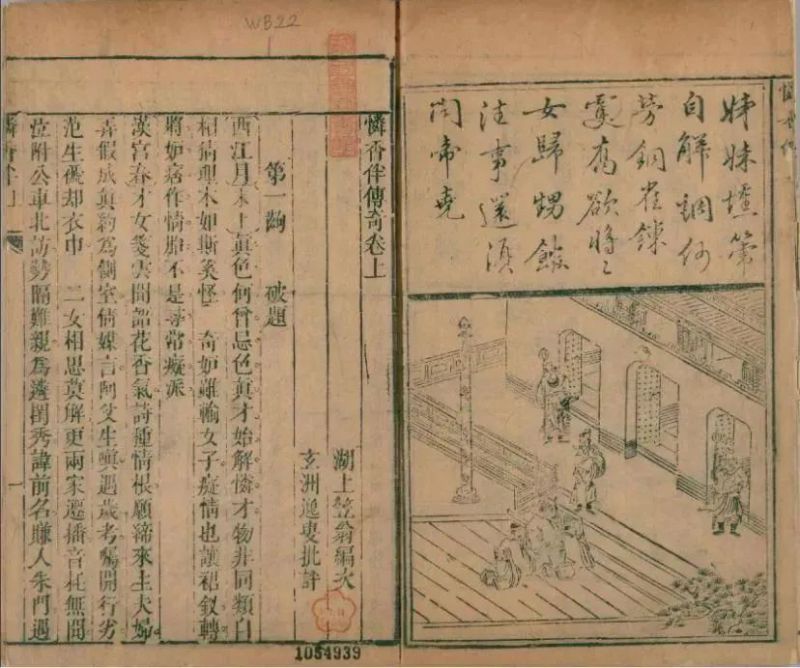 憐香伴
姊妹壎箎
自解調何
勞銅雀鎖
雙喬欲將二
女歸甥館
往事還須
問帝堯
WB22
憐香伴傳奇卷上
湖上笠翁編次
玄洲逸叟批評
第一齣 破題
西江月末上真色何曾忌色真才始解憐才物非同類自
相猜理本如斯奚怪 奇妒難輸女子癡情也讓裙釵轉
將妒痞作情胎不是尋常癡派
漢宮春才女箋雲聞語花香氣詩種情根願締來生夫婦
弄假成真約爲側室倩媒言阿父生嗔遇歲考囑開行劣
范生褫却衣巾 二女相思莫解更兩家遷播音耗無聞
並附公車北訪勢隔難親爲選閨秀諱前名賺入朱門遇
憐香伴 上
一
1054939